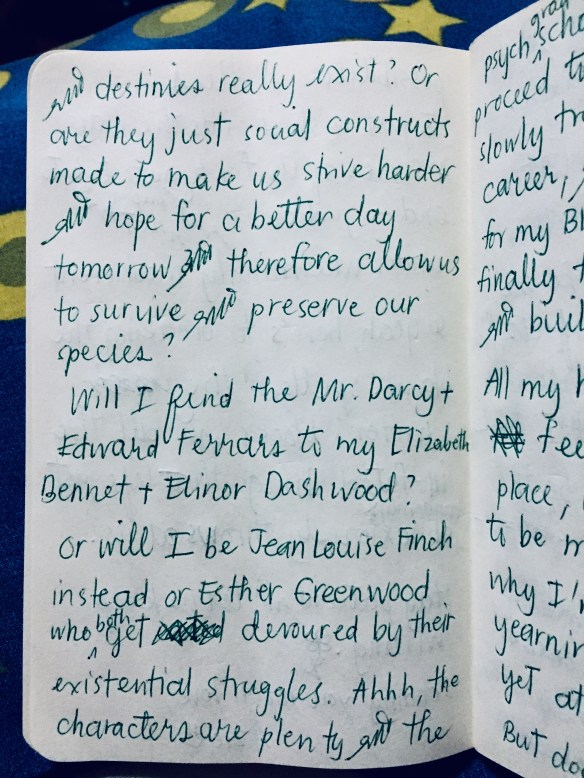 and destinies really exist? Or
are they just social constructs
made to make us strive harder
and hope for a better day
tomorrow and therefore allow us
to survive and preserve our
species?
Will I find the Mr. Darcy +
Edward Ferrars to my Elizabeth
Bennet + Elinor Dashwood?
Or will I be Jean Louise Finch
instead or Esther Greenwood
who both get devoured by their
existential struggles. Ahhh, the
characters are plenty and the
psych grad
proceed
slowly
career,
for my
finally
and
All my
place,
to be
why
yet at
But